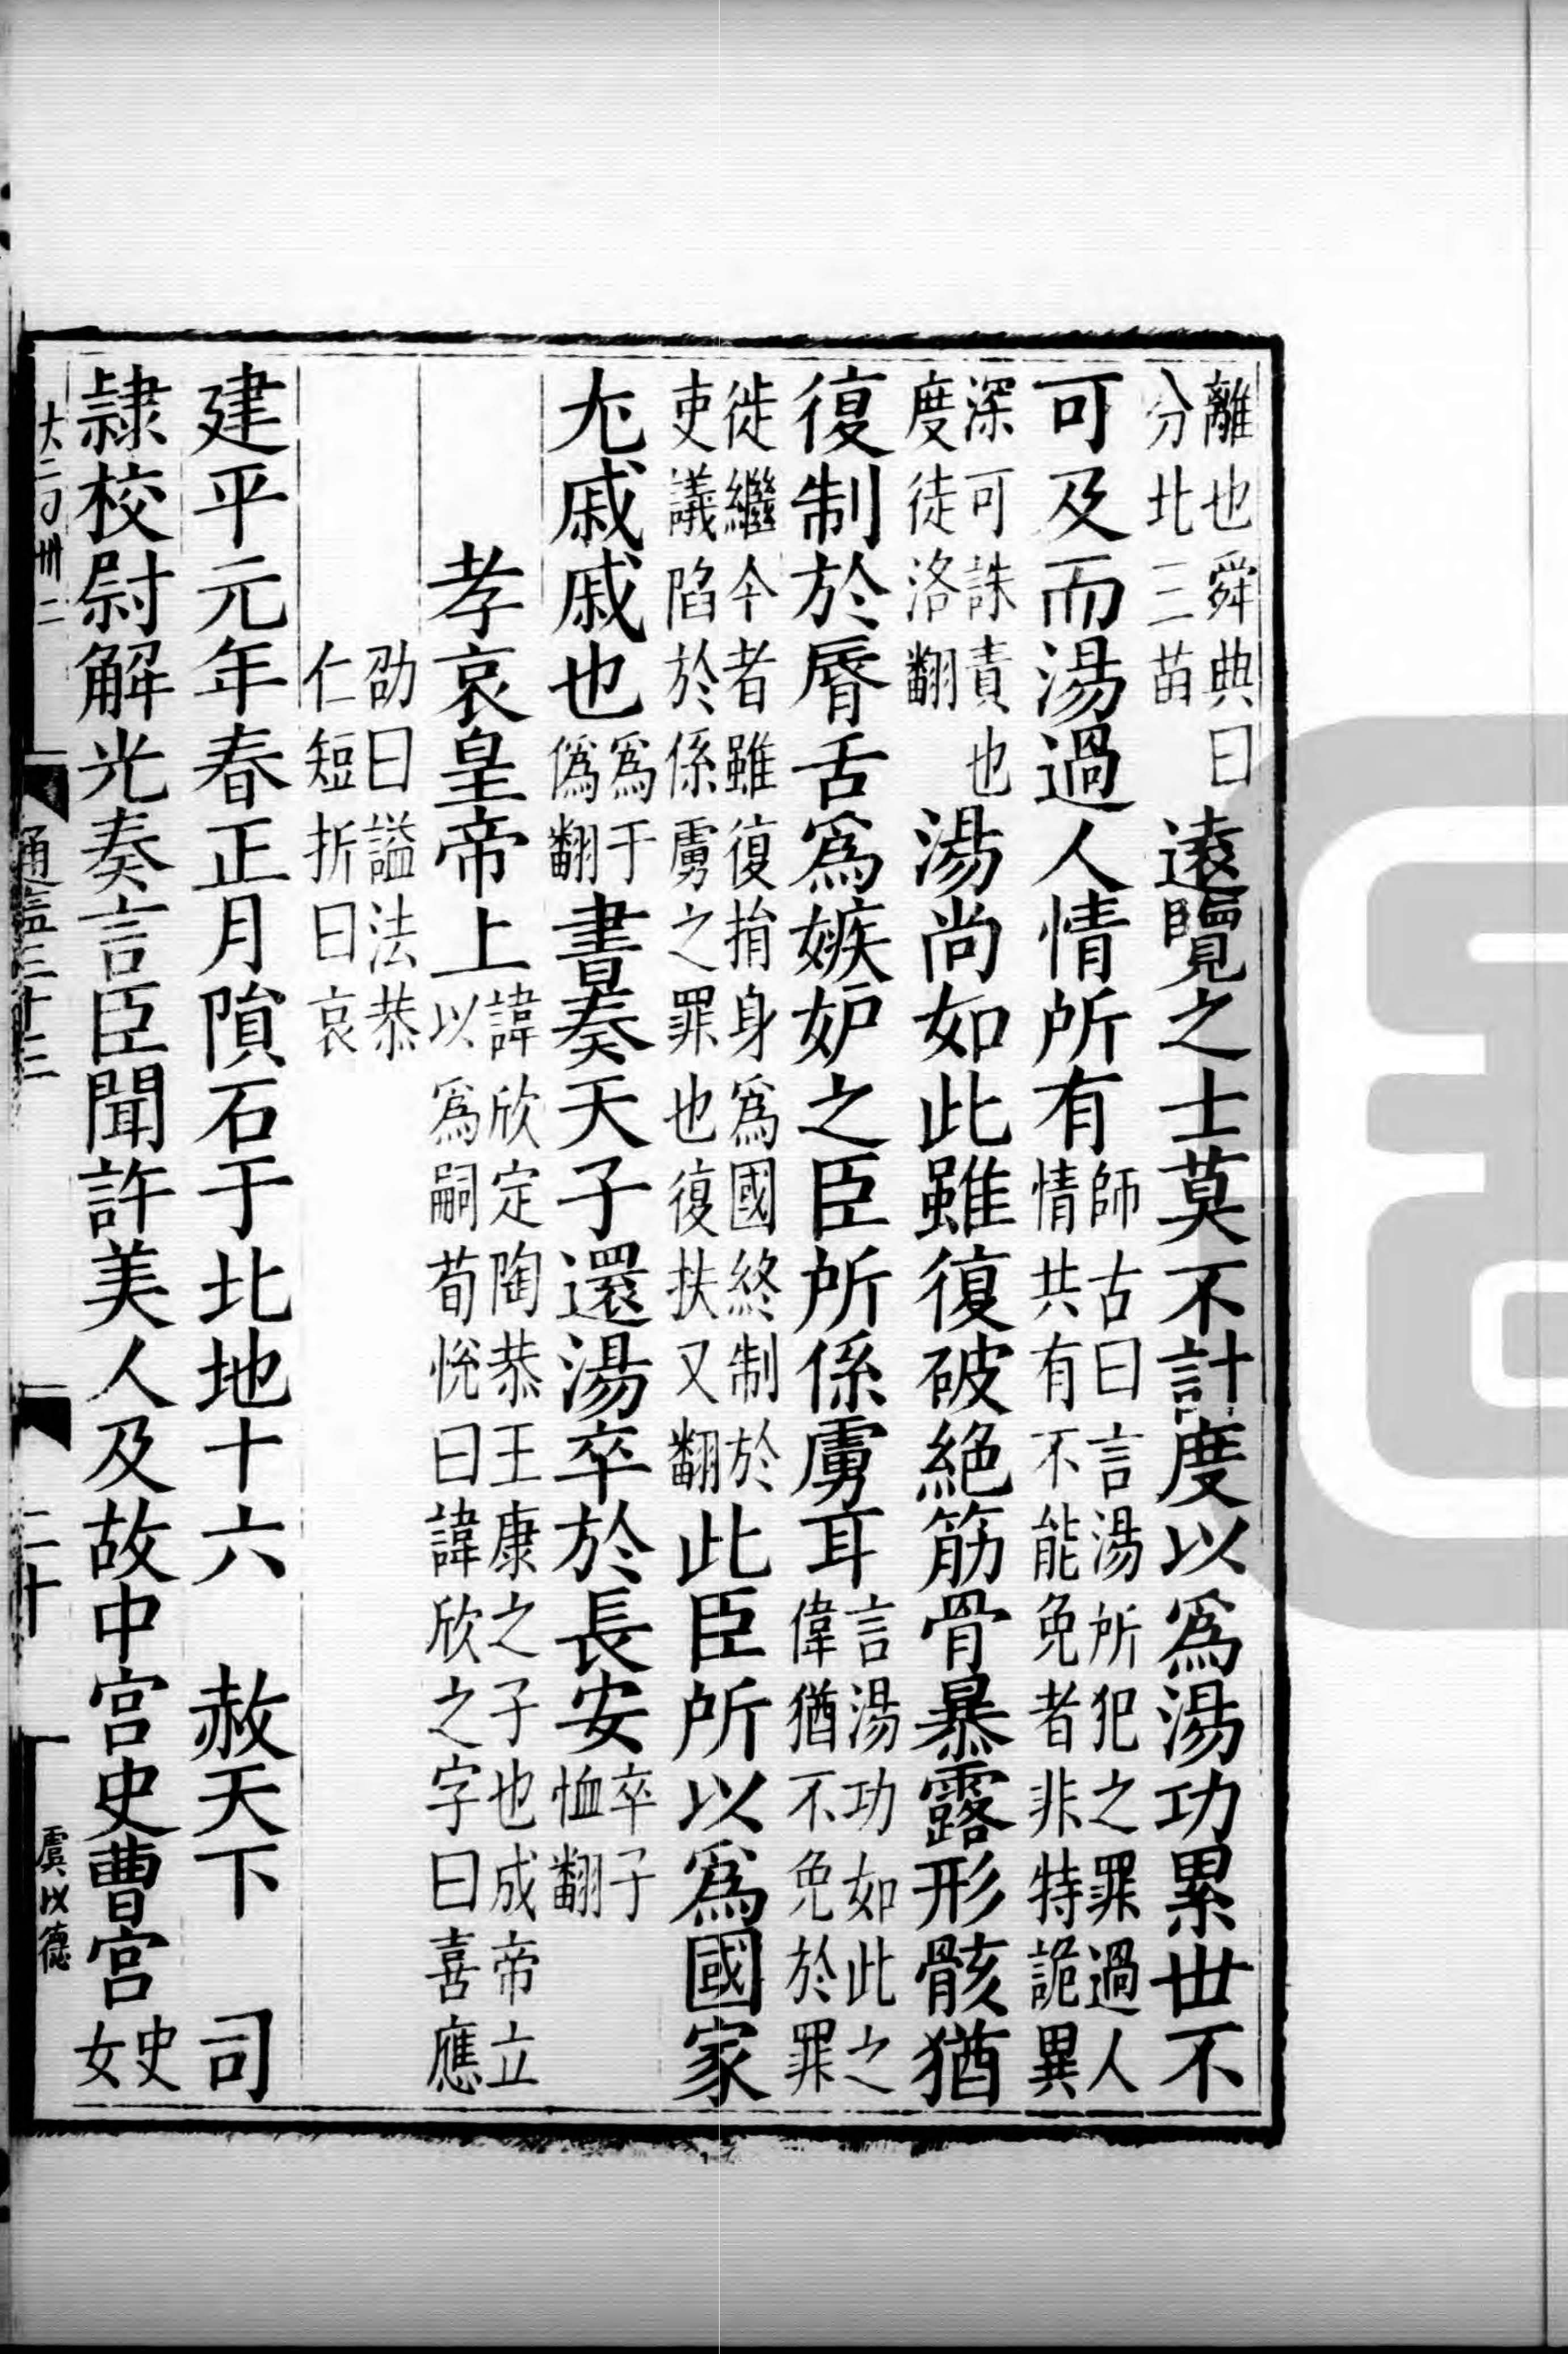 離也舜典曰分北三苗遠覽之士莫不計度以爲湯功累世不
可及而湯過人情所有師古曰言湯所犯之罪過人情共有不能免者非特詭異
深可誅責也度徒洛翻湯尚如此雖復破絕筋骨暴露形骸猶
復制於脣舌爲嫉妒之臣所係虜耳言湯功如此之偉猶不免於罪
徙繼今者雖復捐身爲國終制於吏議陷於係虜之罪也復扶又翻此臣所以爲國家
尤戚戚也爲于僞翻書奏天子還湯卒於長安卒子恤翻
孝哀皇帝上諱欣定陶恭王康之子也成帝立以爲嗣荀悅曰諱欣之字曰喜應
劭曰謚法恭仁短折曰哀
建平元年春正月隕石于北地十六 赦天下 司
隷校尉解光奏言臣聞許美人及故中宮史曹宮史女
通鑑三十三
二十
虞以德